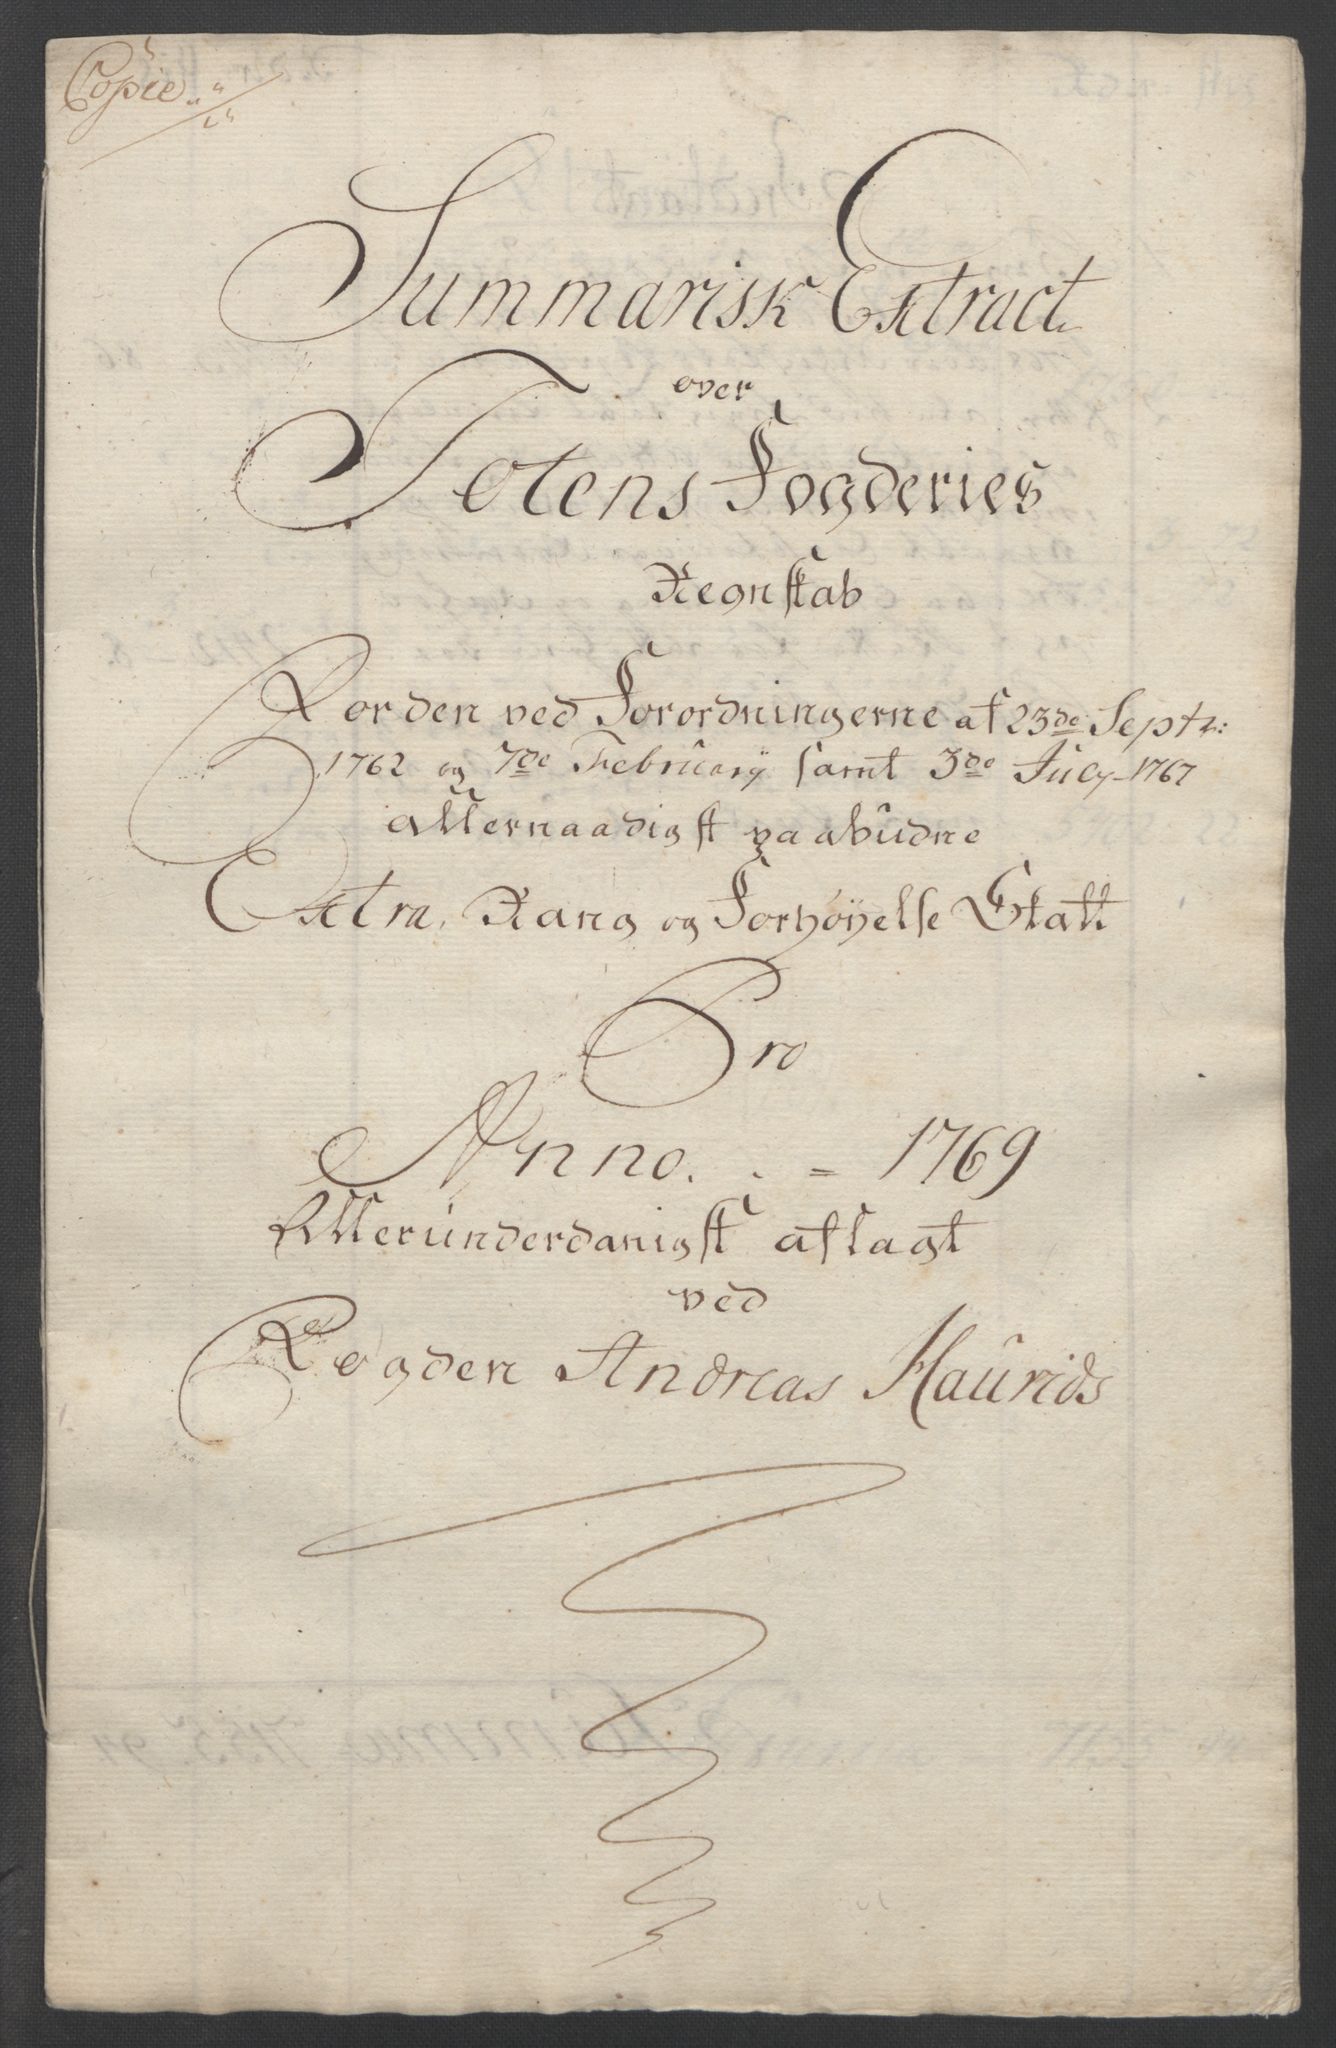 Copie
Summarisk Extract
over
Totens Fogderies
Regnskab
For den ved Forordningerne af 23de Septr:
1762 og 7de Februarÿ samt 3de Julÿ 1767
allernaadigst paabudne
Extra, Rang og Forhøyelse Skatt
Pro
Anno. . = 1769
Allerunderdanigst aflagt
ved
Fogden Andreas Haurids